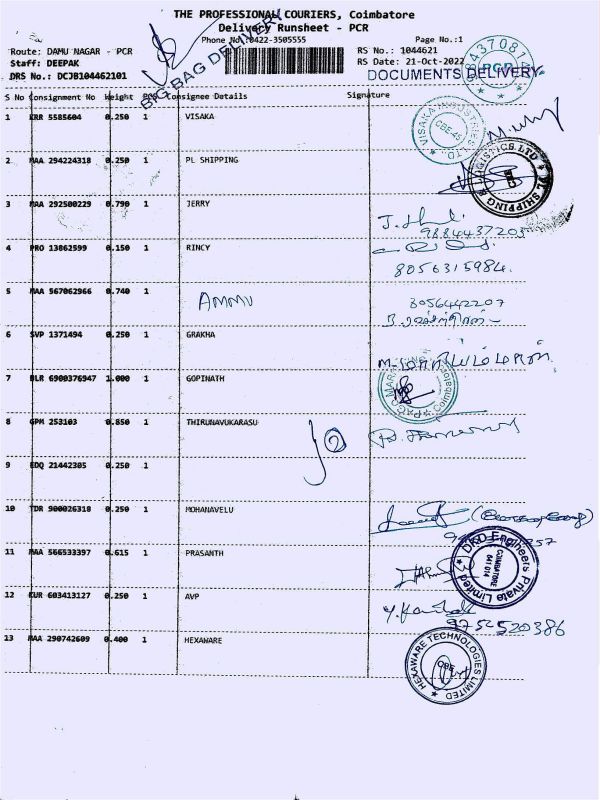 THE PROFESSIONAL COURIERS, Coimbatore
Delivery Runsheet - PCR
Phone No.:0422-3505555
Page No.:1
Route: DAMU NAGAR - PCR
RS No.: 1044621
Staff: DEEPAK
RS Date: 21-Oct-2022
DRS No.: DCJB104462101
BIG BAG DELIVERY
DOCUMENTS DELIVERY
PCR
S No Consignment No Weight Consignee Details Signature
1 KRR 5585604 0.250 1 VISAKA
VISAKA INDUSTRIES LTD
CBE-45
2 MAA 294224318 0.250 1 PL SHIPPING
PL SHIPPING & LOGISTICS LTD
3 MAA 292500229 0.790 1 JERRY
9884437205
4 PRO 13862599 0.150 1 RINCY
8056315984.
5 MAA 567062966 0.740 1 AMMU
8056442207
6 SVP 1371494 0.250 1 GRAKHA
7 BLR 6900376947 1.000 1 GOPINATH
Coimbatore
8 GPM 253103 0.850 1 THIRUNAVUKARASU
9 EDQ 21442305 0.250 1
10 TDR 900026318 0.250 1 MOHANAVELU
11 MAA 566533397 0.615 1 PRASANTH
DKD Engineers Private Limited
COIMBATORE
641 014
12 KUR 603413127 0.250 1 AVP
9752520386
13 MAA 290742609 0.400 1 HEXAWARE
HEXAWARE TECHNOLOGIES LIMITED
CBE